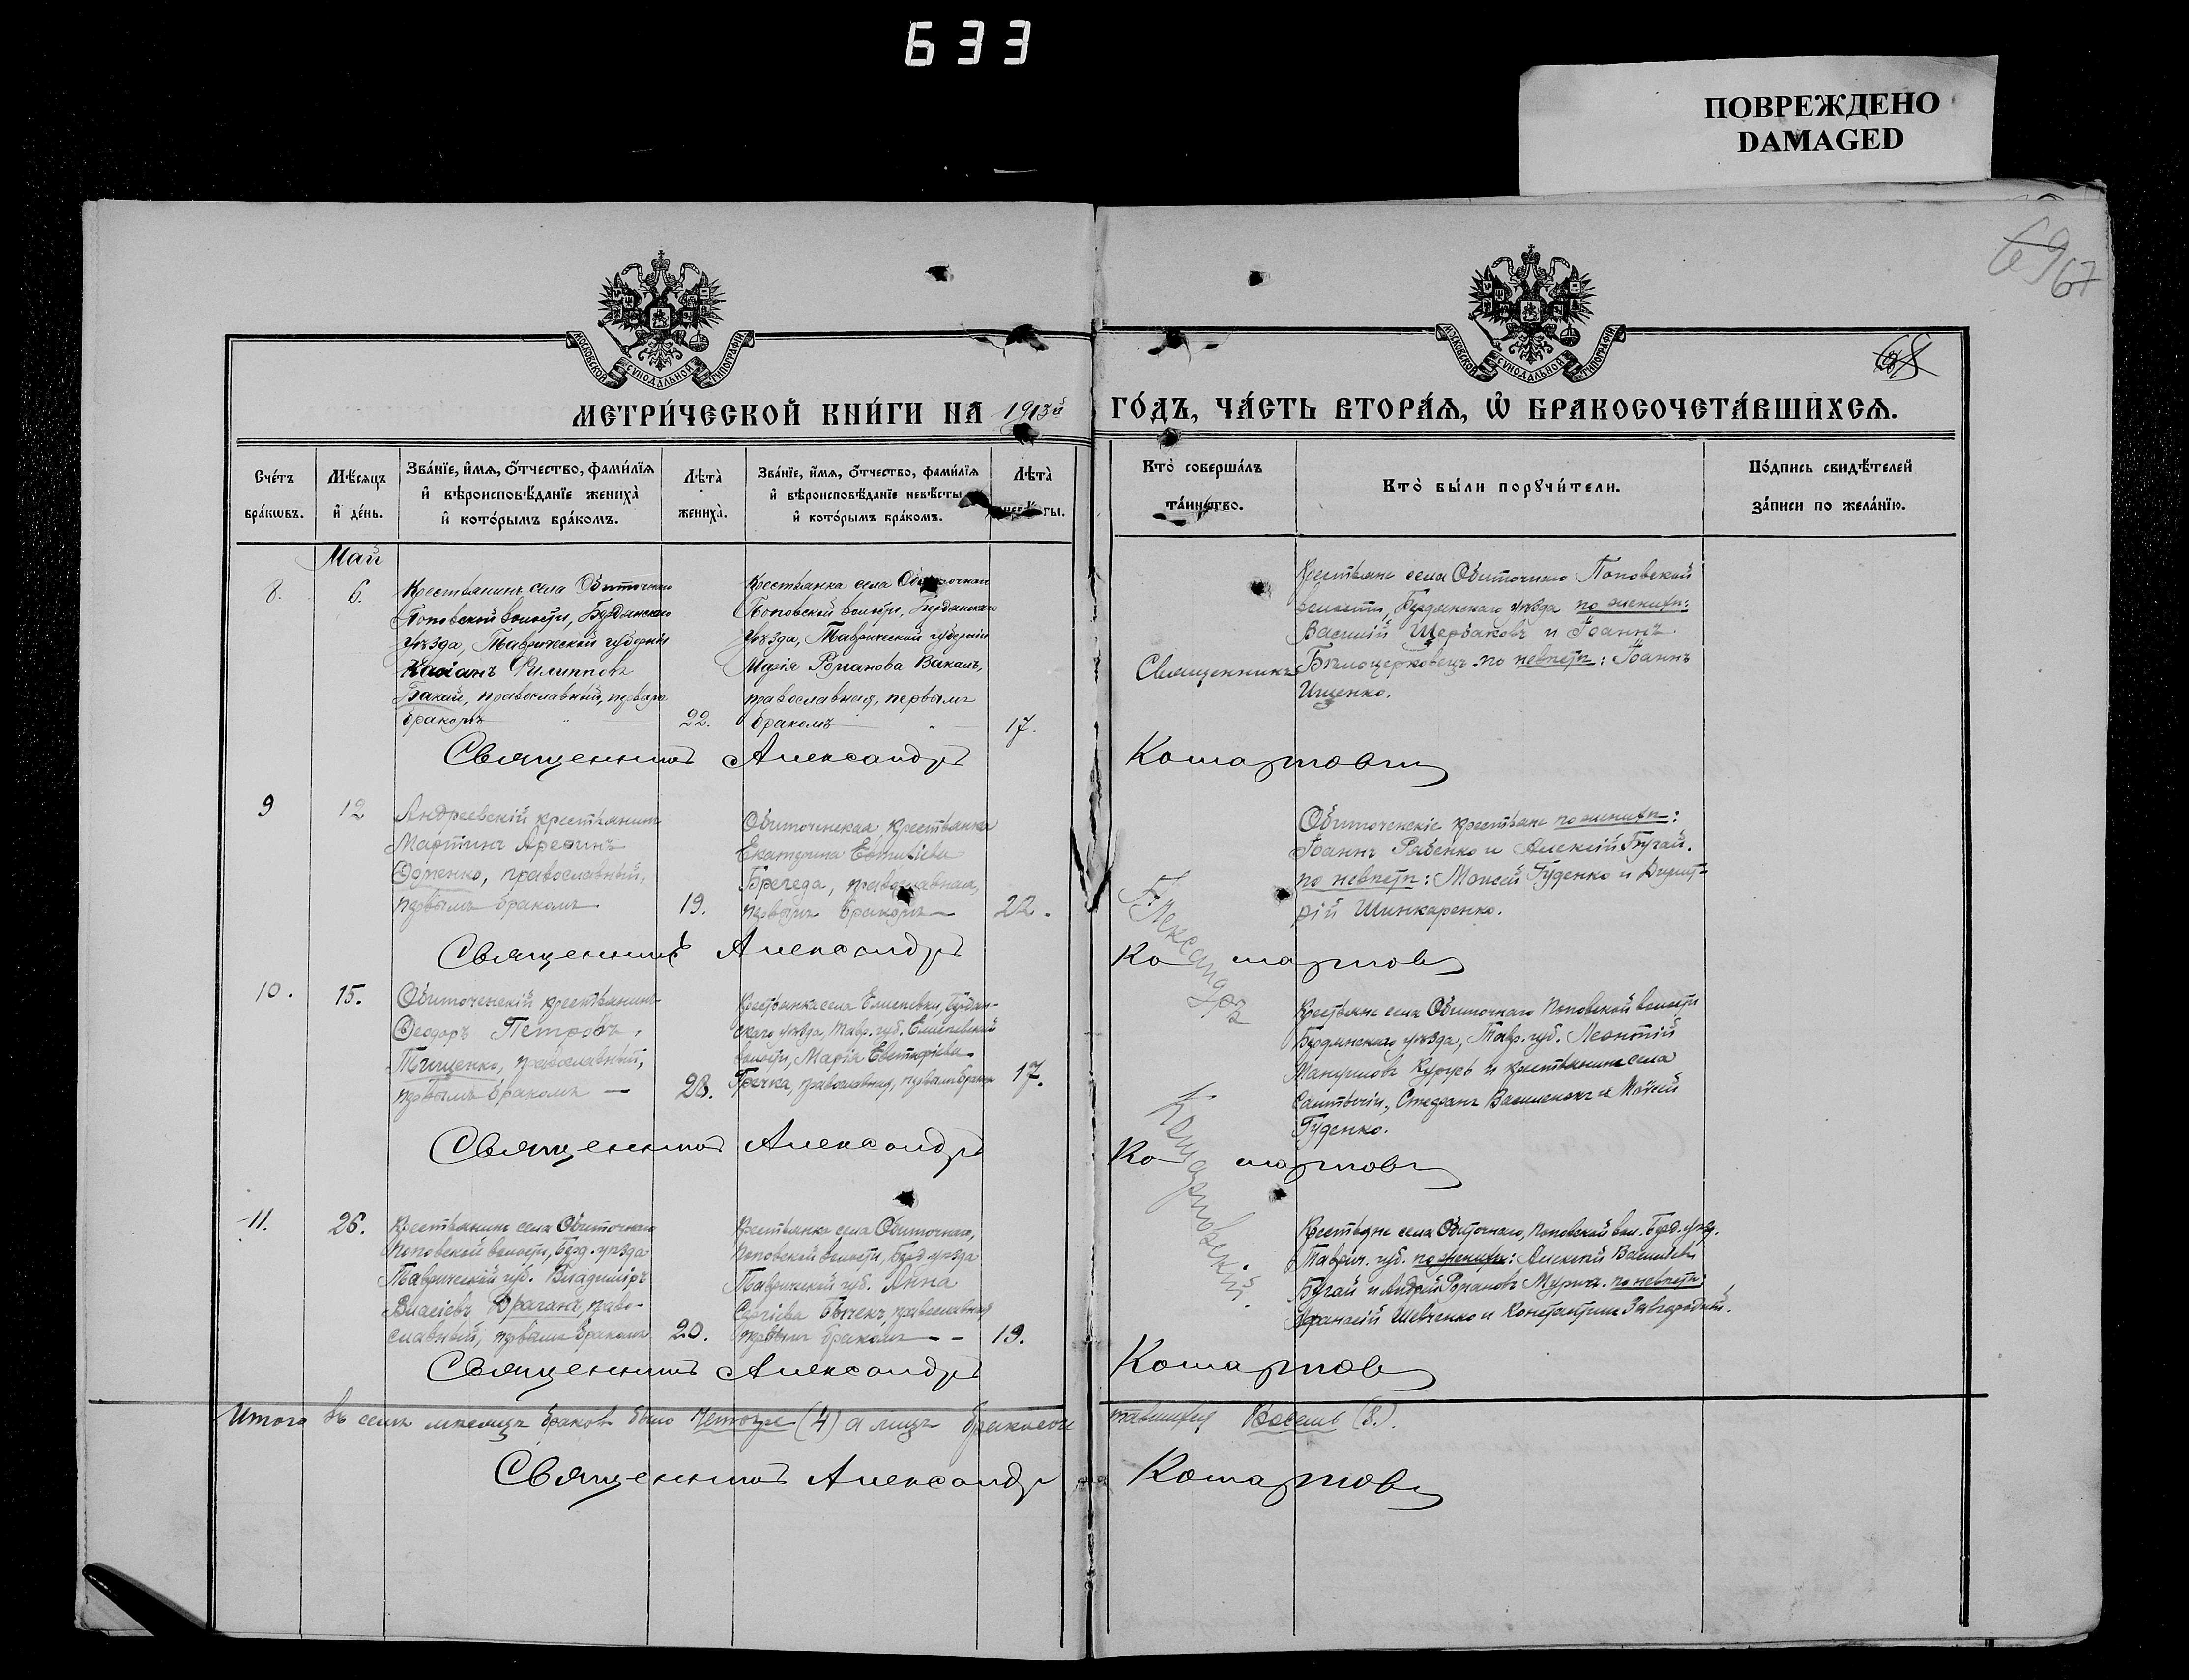 633
ПОВРЕЖДЕНО
DAMAGED
69
67
68
МОСКОВСКОЙ СѴНОДАЛЬНОЙ ТИПОГРАФІИ
МОСКОВСКОЙ СѴНОДАЛЬНОЙ ТИПОГРАФІИ
МЕТРИ́ЧЕСКОЙ КНИ́ГИ НА 1913й ГО́ДЪ, ЧА́СТЬ ВТОРА́Я, Ѡ҆ БРАКОСОЧЕТА́ВШИХСЯ.
Сче́тъ бра́кѡвъ.
Мѣ́сяцъ и҆ де́нь.
Зва́нїе, и҆́мя, ѻ҆́тчество, фами́лїя и҆ вѣроисповѣ́данїе жениха̀ и҆ кото́рымъ бра́комъ.
Лѣта̀ жениха̀.
Зва́нїе, и҆́мя, ѻ҆́тчество, фами́лїя и҆ вѣроисповѣ́данїе невѣ́сты и҆ кото́рымъ бра́комъ.
Лѣта̀
Кто̀ соверша́лъ та́инство.
Кто̀ бы́ли порꙋчи́тели.
По́дпись свидѣ́телей за́писи по жела́нїю.
Май
8.
6.
Крестьянинъ села Обиточнаго
Поповской волости, Бердянскаго
уѣзда, Таврической губерніи
Касіанъ Филипповъ
Бакай, православный, первымъ
бракомъ
22.
Крестьянка села
Поповской волости, Бердянскаго
уѣзда, Таврической губерніи
Марія Романова Вакалъ,
православная, первымъ
бракомъ
17.
Священникъ
Крестьяне села Обиточнаго Поповской
волости, Бердянскаго уѣзда по женихѣ:
Василій Щербаковъ и Іоаннъ
Бѣлоцерковецъ. по невѣстѣ: Іоаннъ
Ищенко.
Священникъ Александръ
9
12
Андреевскій крестьянинъ
Мартинъ
православный,
первымъ бракомъ
19.
Обиточенская крестьянка
Екатерина
православная,
первымъ бракомъ
22.
Александръ
Обиточенскіе крестьяне по женихѣ:
Іоаннъ Рябенко и Алексій Бугай.
по невѣстѣ: Моисей Гуденко и Димит-
рій Шинкаренко.
Священникъ Александръ
10.
15.
Обиточенскій крестьянинъ
Ѳеодоръ Петровъ
Тищенко, православный,
первымъ бракомъ
28.
Крестьянка села Елисеевки, Бердян-
скаго уѣзда, Тавр. губ. Елисеевской
волости, Марія Евстафіева
Гречка, православная, первымъ бракомъ
17.
Крестьяне села Обиточнаго Поповской волости
Бердянскаго уѣзда, Тавр. губ. Леонтій
и крестьянинъ села
Стефанъ Василенокъ и Моисей
Гуденко.
Священникъ Александръ
11.
26.
Крестьянинъ села Обиточнаго
Поповской волости, Берд. уѣзда
Таврической губ. Владиміръ
Власіевъ Драганъ, право-
славный, первымъ бракомъ
20.
Крестьянка села Обиточнаго,
Поповской волости, Берд. уѣзда
Таврической губ. Анна
Сергіева Бычекъ, православная
первымъ бракомъ
19.
Крестьяне села Обиточнаго, Поповской вол. Берд. уѣзд.
Таврич. губ. по женихѣ: Алексій Васильевъ
Бугай и Андрей Романовъ по невѣстѣ:
Афанасій Шевченко и Константинъ Завгородный.
Священникъ Александръ
Итого въ семъ мѣсяцѣ браковъ было четыре (4) а лицъ бракосоче тавшихся Восемь (8.).
Священникъ Александръ